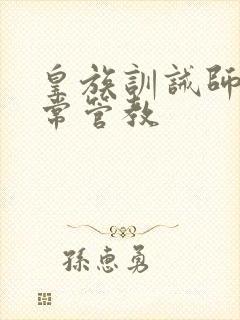 皇族訓誡師
常管教
孫惠勇